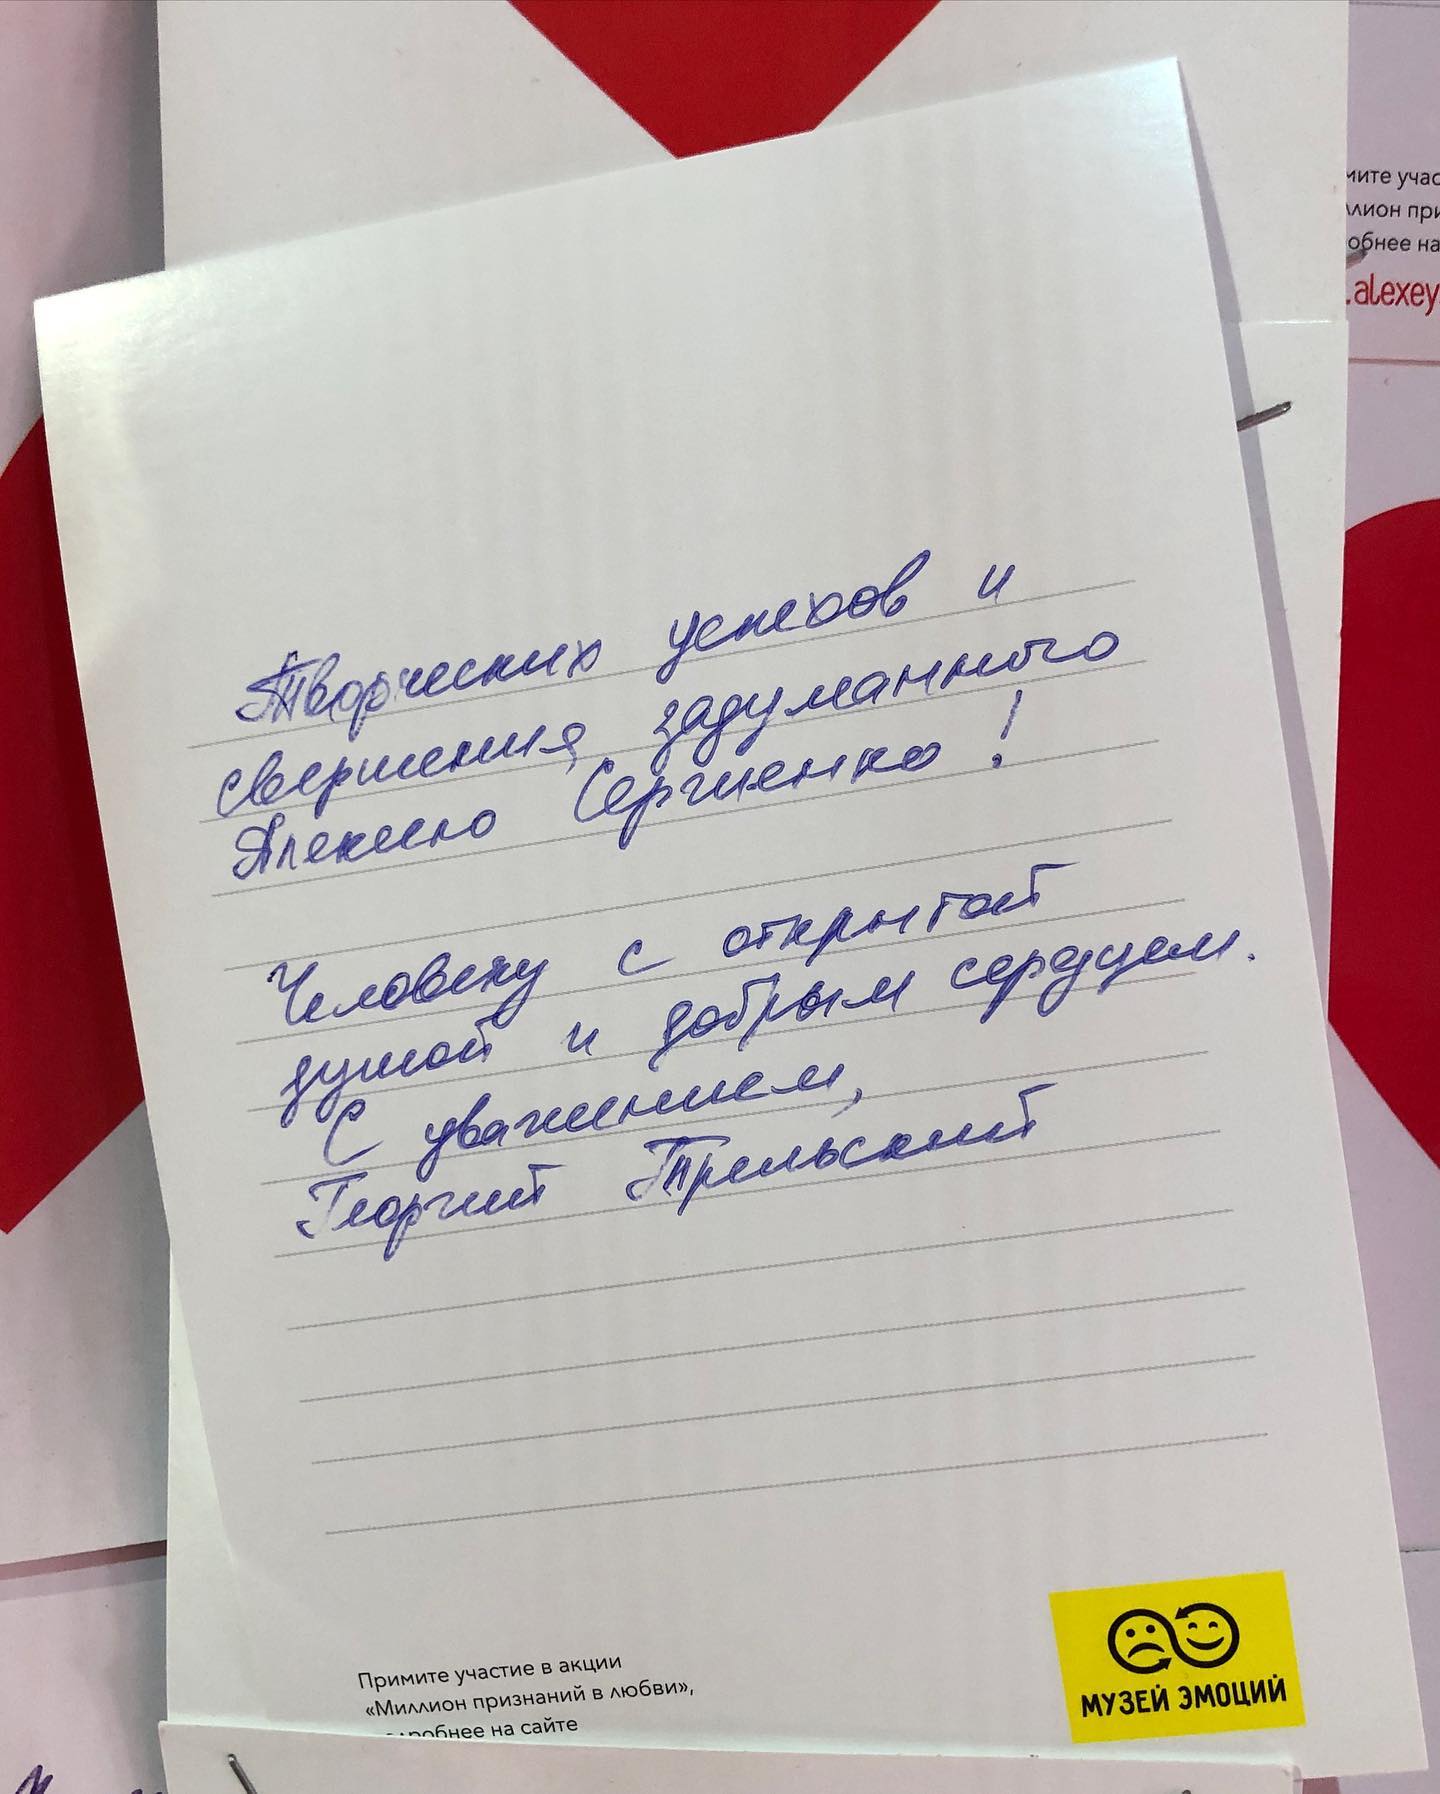 мите учас
ллион при
обнее на
.alexey
Творческих успехов и
свершения задуманного
Алексею Сергиенко!
Человеку с открытой
душой и добрым сердцем.
С уважением,
Георгий Трельский
Примите участие в акции
«Миллион признаний в любви»,
подробнее на сайте
МУЗЕЙ ЭМОЦИЙ